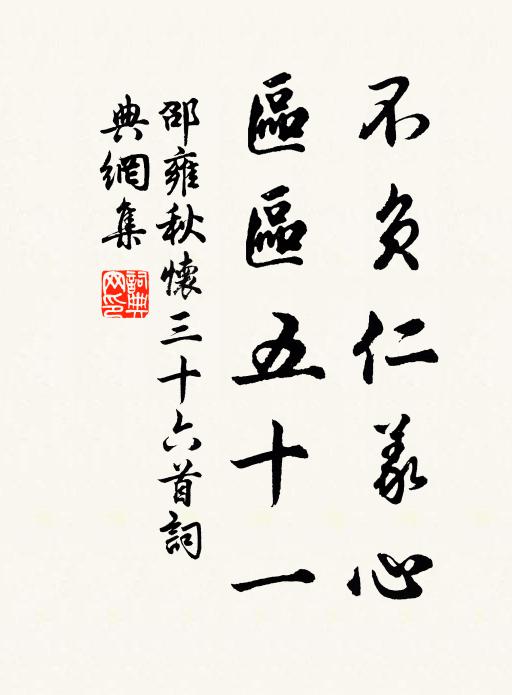 不负仁義心
區區五十一
邵雍秋懷三十六首詞
典網集
詞典
网印